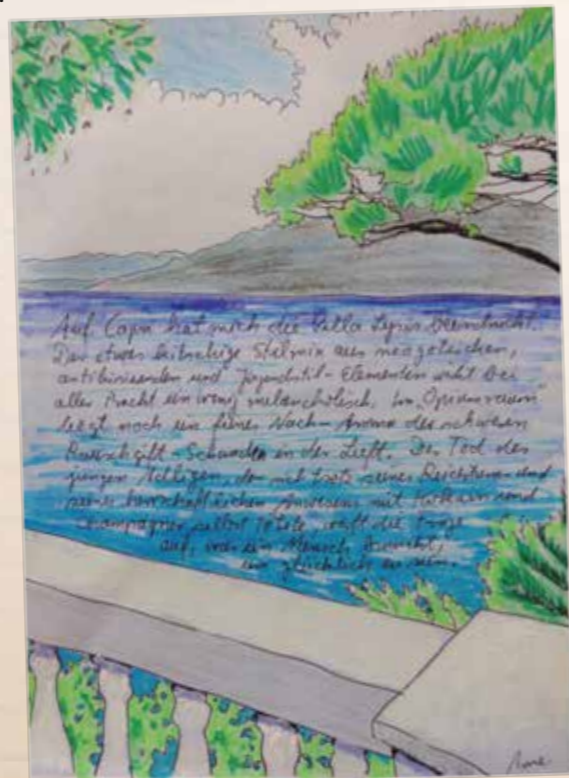 Auf Capri hat mich die Villa Lysis beeindruckt.
Der etwas kitschige Stilmix aus neogotischen,
antikisierenden und Jugendstil-Elementen wirkt bei
aller Pracht ein wenig melancholisch. Im "Opiumraum"
liegt noch ein feines Nach-Aroma der schweren
Rauschgift-Schwaden in der Luft. Der Tod des
jungen Adligen, der sich trotz seines Reichtums und
seines herrschaftlichen Anwesens mit Kokain und
Champagner selbst tötete, wirft die Frage
auf, was ein Mensch braucht,
um glücklich zu sein.